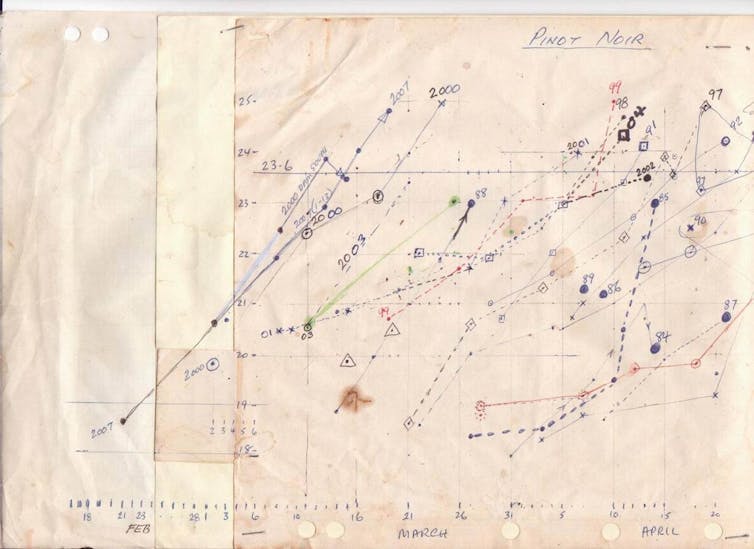 PINOT NOIR
2007
2000
99
98
04
97
25-
91
92
24-
2001
23-6
2000
2002
97
23-
88
85
2000
90
22-
2003
89
86
21-
99
87
01
03
84
20-
2000
19-
2007
2 3 4 5 6
18-
18 21 23 28 1 3 6 11 16 21 26 31 5 10 15 20
FEB MARCH APRIL